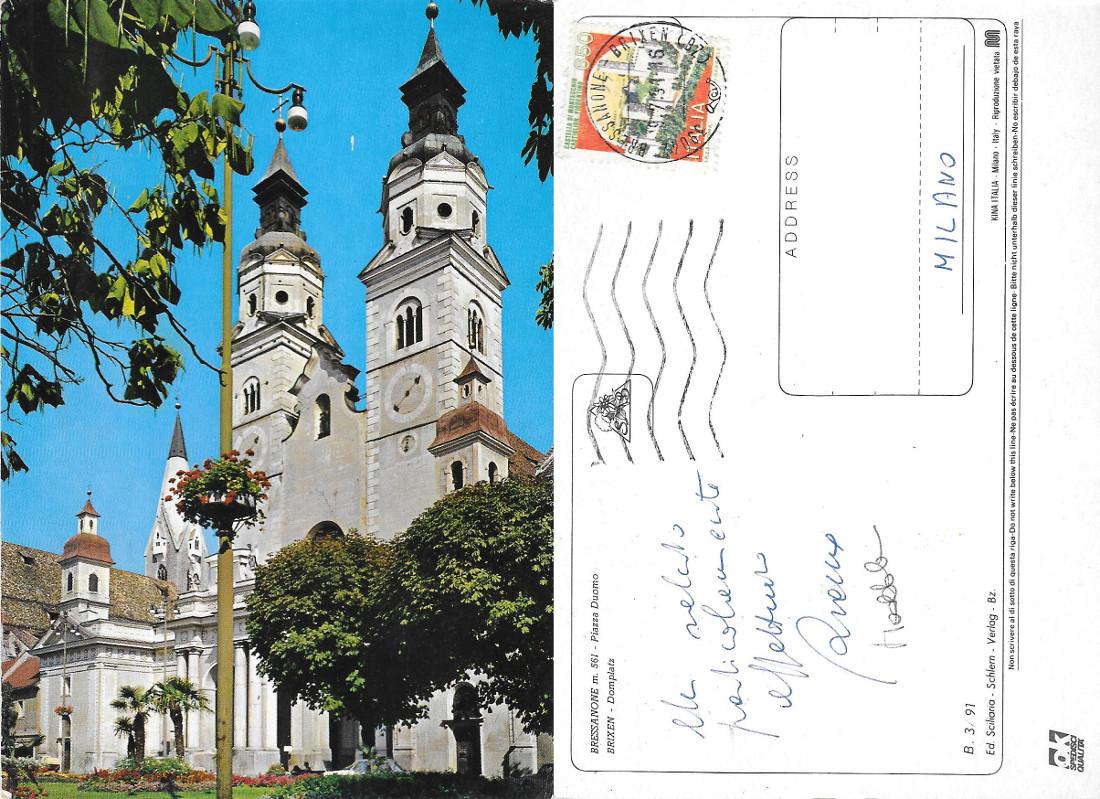 BRESSANONE m. 561 - Piazza Duomo
BRIXEN - Domplatz
Un saluto
particolarmente
affettuoso
B. 3, 91
Ed. Sciliana - Schlern - Verlag - Bz.
ITALIA
850
BRESSANONE BRIXEN (BZ)
ADDRESS
MILANO
KINA ITALIA - Milano - Italy - Riproduzione vietata
Non scrivere al di sotto di questa riga-Do not write below this line-Ne pas écrire au dessous de cette ligne-Bitte nicht unterhalb dieser linie schreiben-No escribir debajo de esta raya
SPEDISCI
QUALITÀ